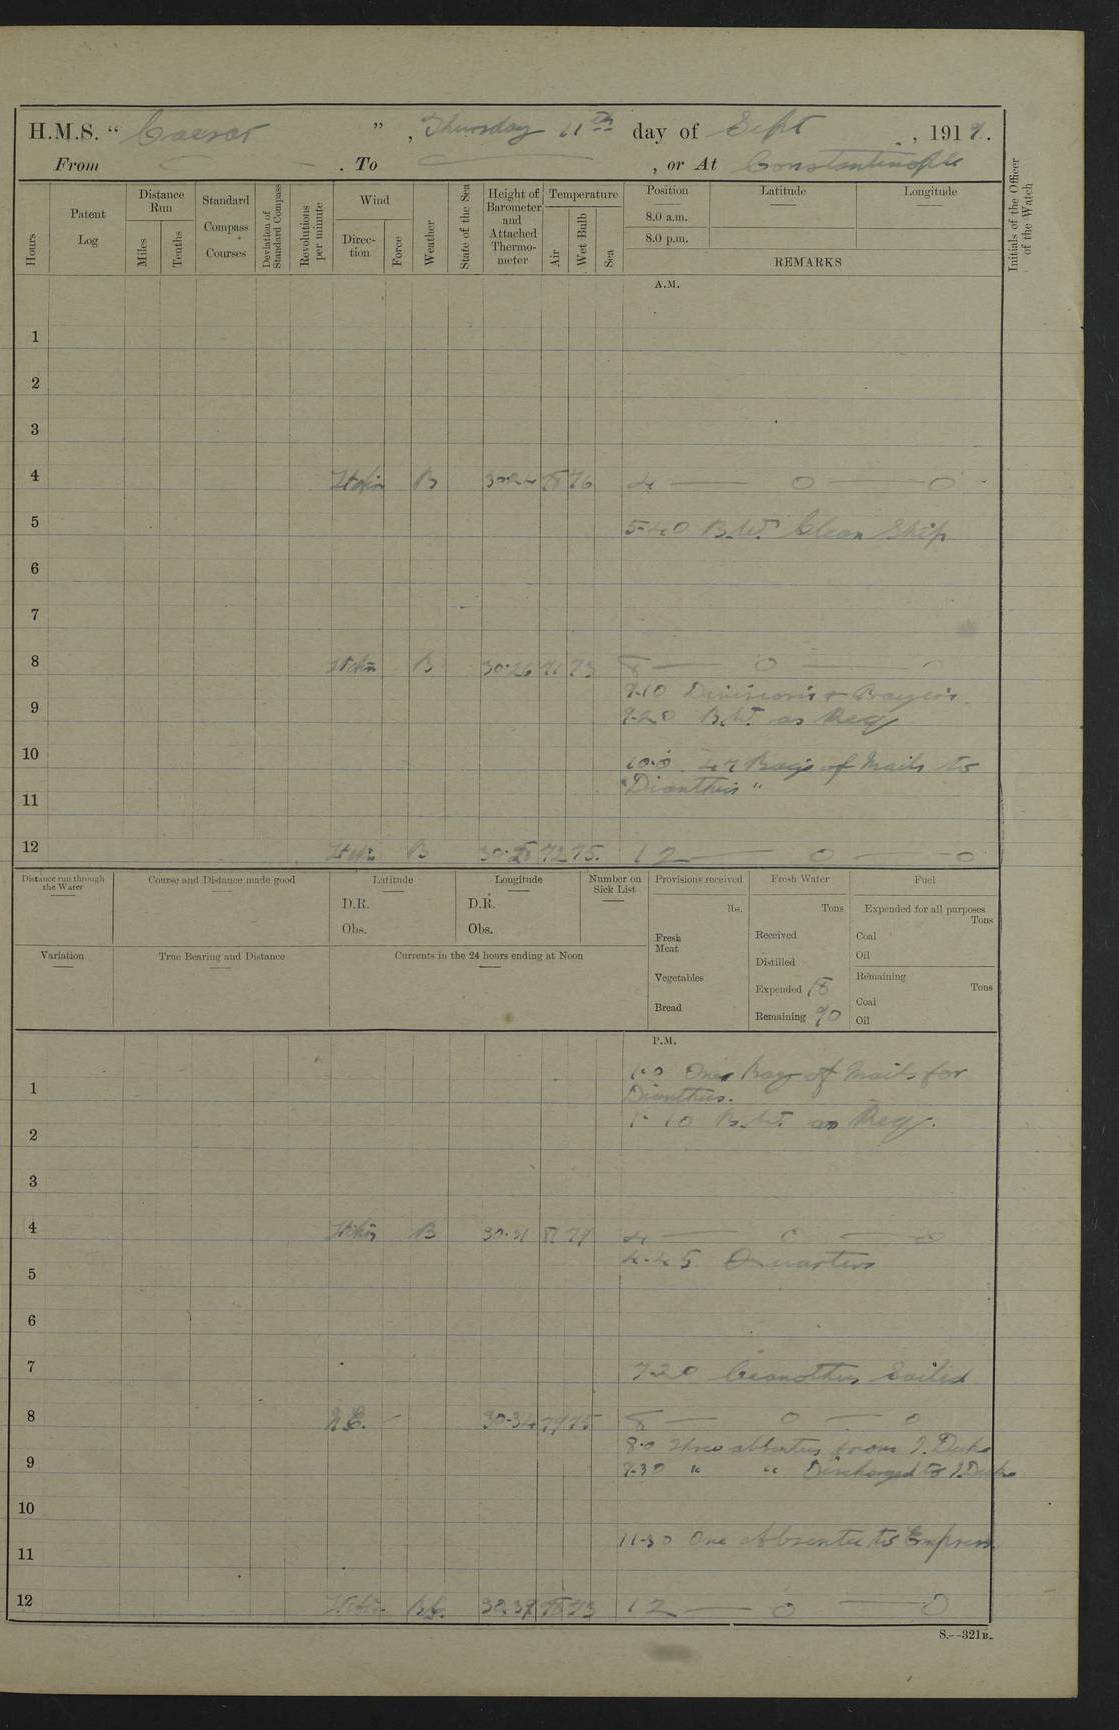 H.M.S. “ Caesar ” , Thursday 11th day of Sept , 1919.
From — . To — , or At Constantinople
Hours
Patent Log
Distance Run
Miles
Tenths
Standard Compass Courses
Deviation of Standard Compass
Revolutions per minute
Wind
Direction
Force
Weather
State of the Sea
Height of Barometer and Attached Thermometer
Temperature
Air
Wet Bulb
Sea
Position Latitude Longitude
8.0 a.m.
8.0 p.m.
REMARKS
Initials of the Officer of the Watch
A.M.
1
2
3
4 B 76 4 — 0 — 0
5 5-40 B.W. Clean Ship
6
7
8 B 30.26 71 73 8 — 0 —
9.10 Divisions & Prayers
9 9-20 B.W. as Req
10 10.0 Bags of Mails to
"Dianthus"
11
12 B 72 75. 12 — 0 — 0
Distance run through the Water
Course and Distance made good
Latitude
D.R.
Obs.
Longitude
D.R.
Obs.
Number on Sick List
Provisions received
lbs.
Fresh Meat
Vegetables
Bread
Fresh Water
Tons
Received
Distilled
Expended 18
Remaining 90
Fuel
Expended for all purposes
Tons
Coal
Oil
Remaining
Tons
Coal
Oil
Variation
True Bearing and Distance
Currents in the 24 hours ending at Noon
P.M.
1.0 One Bag of Mails for
1 Dianthus.
1-10 B.W. as Req.
2
3
4 B 30.31 79 4 — 0 — 0
4-45 Quarters
5
6
7 7-20 sailed
8 N.E. 30.34 77 75 8 — 0 — 0
8.0 Three absentees from
9 9-30 “ “ Discharged to
10
11-30 One Absentee to Empress
11
12 12 — 0 — 0
S.—321B.